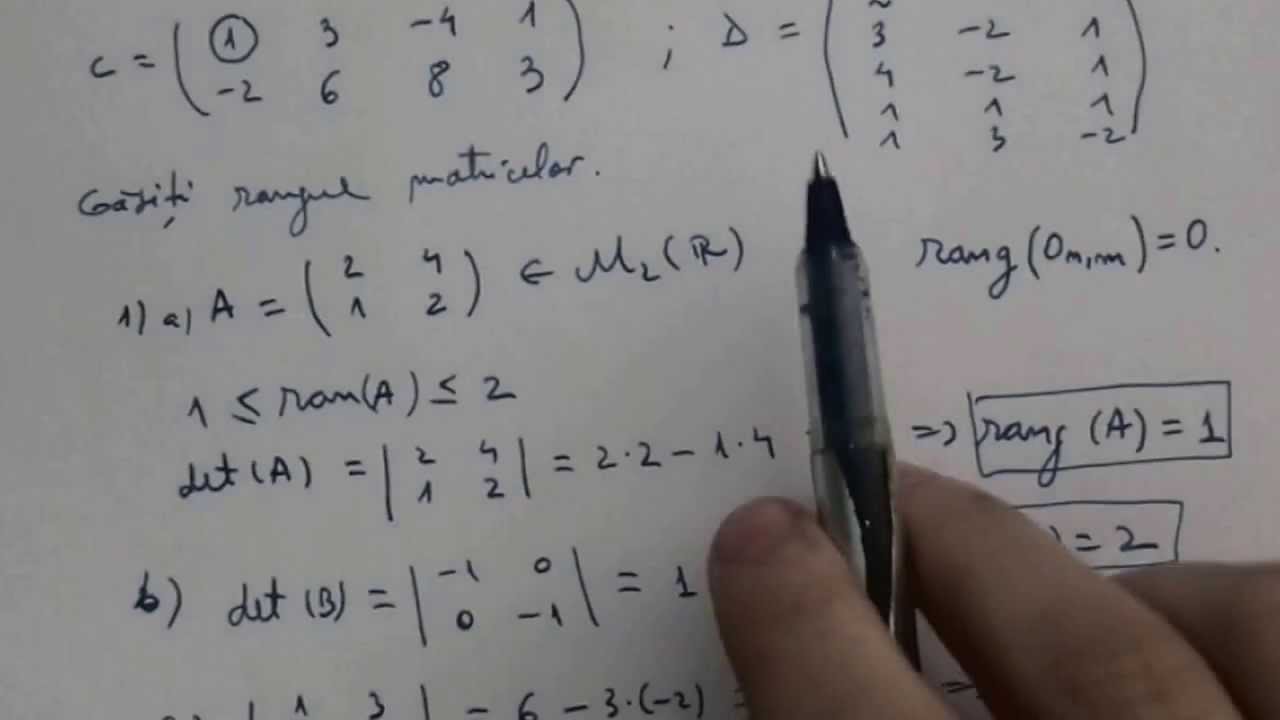 C = ( 1 3 -4 1
-2 6 8 3 ) ; D = ( 3 -2 1
4 -2 1
1 1 1
1 3 -2 )
Găsiți rangul matricelor.
1) a) A = ( 2 4
1 2 ) ∈ M₂(ℝ) rang(O_{m,n}) = 0.
1 ≤ ran(A) ≤ 2
det(A) = | 2 4
1 2 | = 2·2 - 1·4 => rang (A) = 1
) = 2
b) det (B) = | -1 0
0 -1 | = 1
| 1 3 | = 6 - 3·(-2) = =